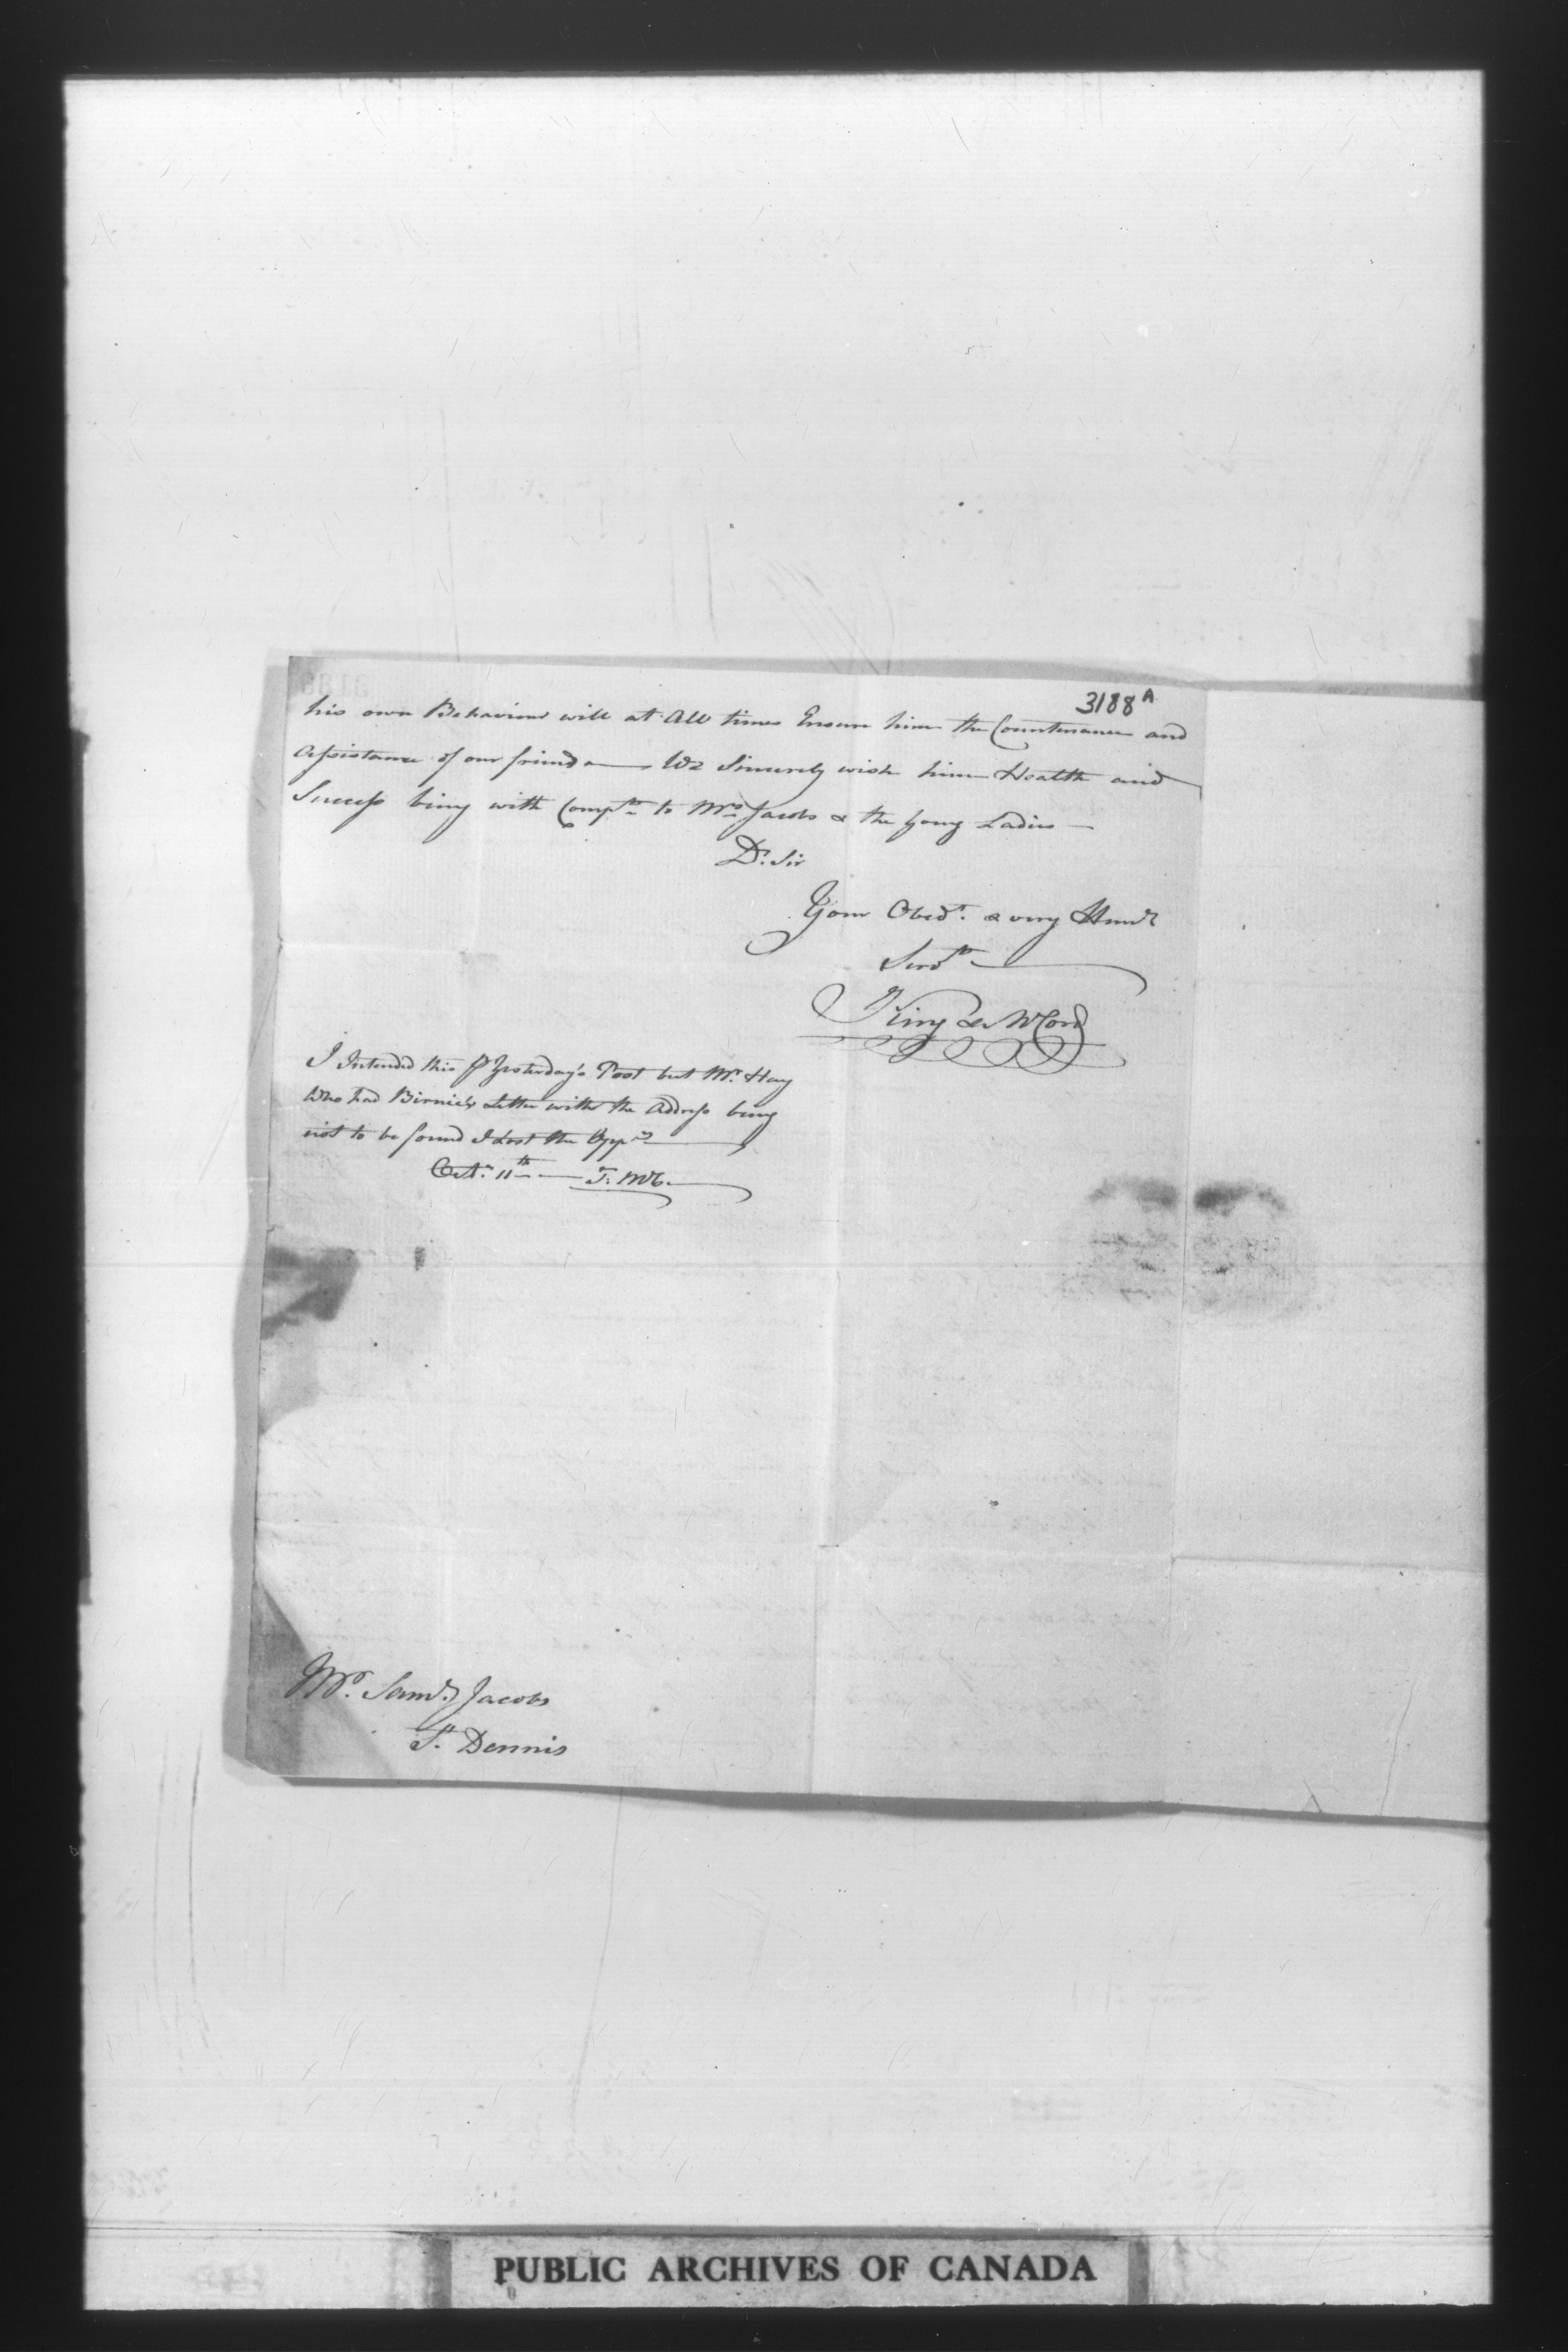 3188 A
his own Behaviour will at All times Ensure him the Countenance and
Assistance of our friends — We Sincerely wish him Health and
Success being with Compts. to Mrs. Jacobs & the young Ladies —
Dr. Sir
Your Obedt. & very Humle
Servts
King & McCord
I Intended this P Yesterday's Post but Mr. Hay
Who had Birnie's Letter with the Address being
not to be found I Lost the Oppy
Octr. 11th — J: McC.
Mr. Saml. Jacobs
St. Dennis
PUBLIC ARCHIVES OF CANADA